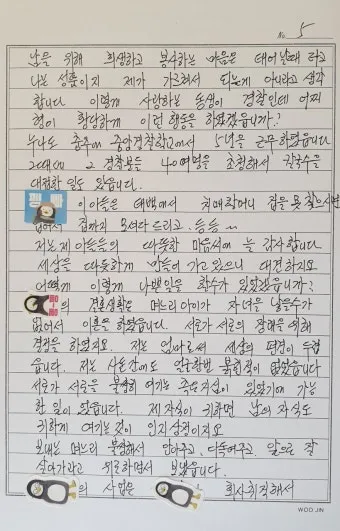 No. 5
남을 위해 희생하고 봉사하는 마음은 태어날때 타고
나는 성품이지 제가 가르쳐서 되는게 아니라고 생각
합니다 이렇게 사랑하는 동생이 경찰인데 어찌
형이 황당하게 이런 행동을 하였겠습니까?
누나도 충주에 중앙경찰학교에서 5년을 근무하였습니다
그때 경찰분들 40여명을 초청해서 칼국수을
대접한 일도 있습니다.
이 아들은 태백에서 치매할머니 집을 못 찾으시면
업어서 집까지 모셔다 드리고. 등등 ~
저는 제 아들들의 따뜻한 마음씨에 늘 감사합니다
세상을 따듯하게 만들어 가고 있으니 대견하지요
어떻게 이렇게 나쁜일을 할수가 있었겠습니까?
의 결혼생활은 며느리 아이가 자녀을 낳을수가
없어서 이혼을 하였습니다. 서로가 서로의 장래을 위해
결정을 하였지요. 저는 엄마로써 세상의 편견이 두렵
습니다. 저는 사는동안에도 불편함이 없었습니다
서로가 서로를 불쌍히 여기는 측은지심이 있었기에 가능
한 일이 였습니다. 제 자식이 귀하면 남의 자식도
귀하게 여기는것이 인지상정이지요
보내는 며느리 불쌍해서 안아주고. 다독여주고. 앞으로 잘
살아가라고 위로하면서 보냈습니다.
의 사업은 회사취직해서
WOO JIN